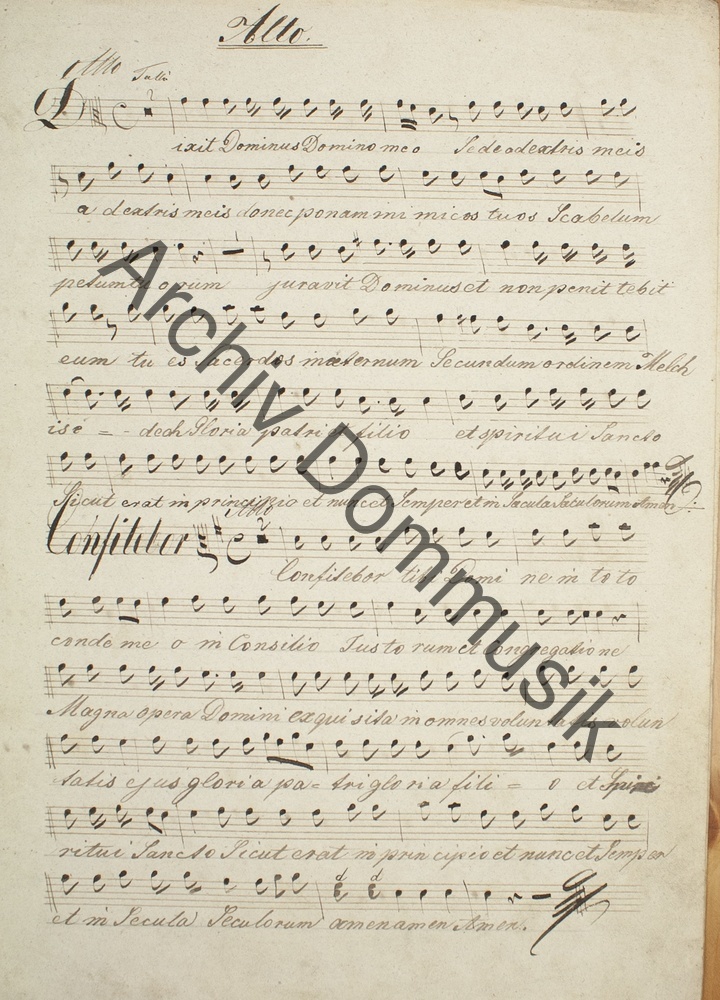 Alto.
Allo Tutti
Dixit Dominus Domino meo Sede a dextris meis
a dextris meis donec ponam inimicos tuos Scabelum
petum tuorum juravit Dominus et non penit tebit
eum tu es Sacerdos in æternum Secundum ordinem Melch
ise = - dech Gloria patri filio et spiritui Sancto
Sicut erat in principio et nunc et Semper et in Sæcula Sæculorum Amen
Allo
Confitebor
Confitebor tibi Domi ne in toto
corde me o in Consilio Justo rum et Congregatione
Magna opera Domini exquisita in omnes voluntatis volun
tatis ejus gloria pa - tri gloria fili = o et Spiri
ritui Sancto Sicut erat in principio et nunc et Semper
et in Secula Seculorum amen amen Amen.
Archiv Dommusik